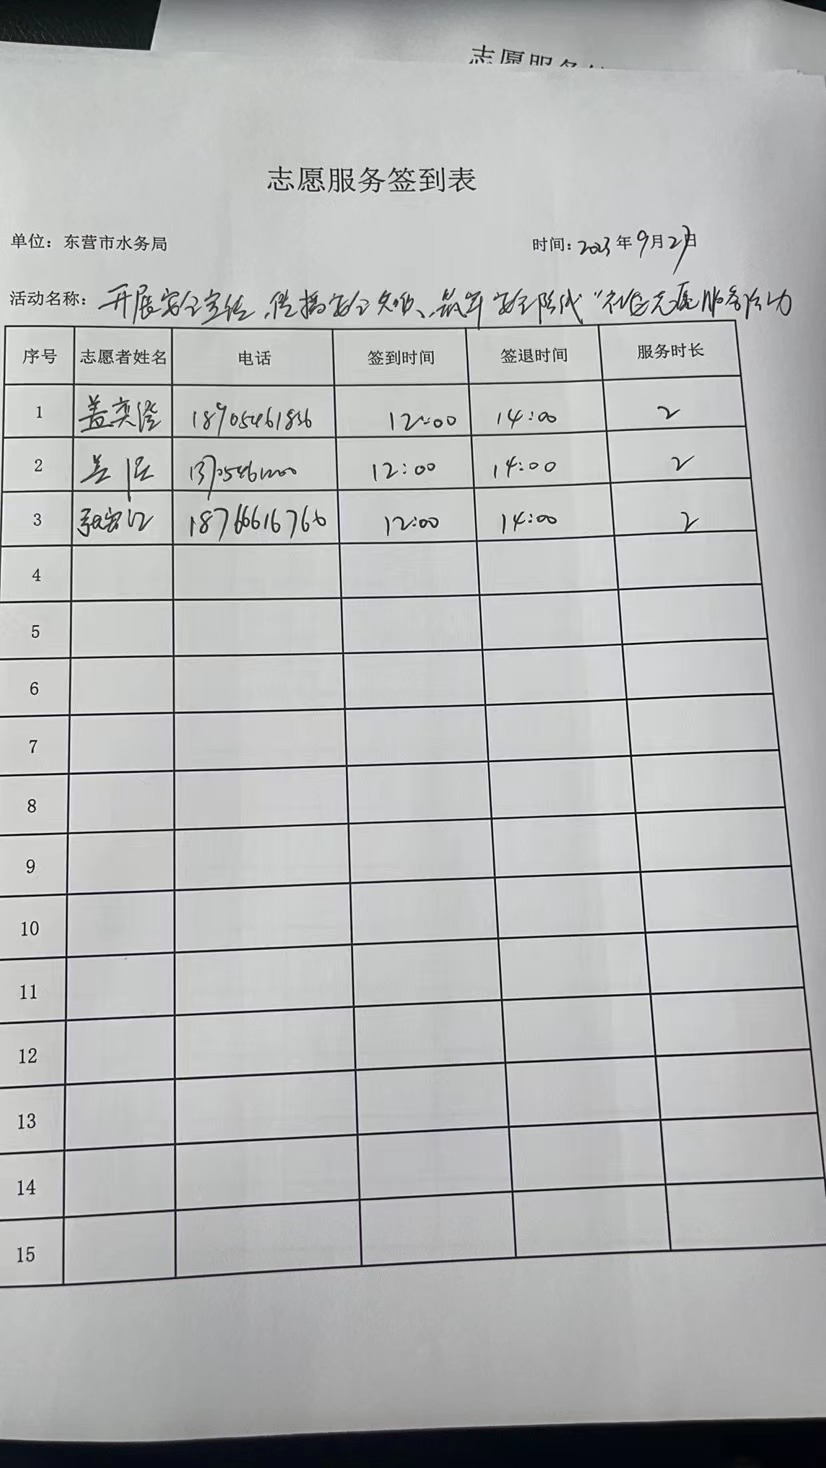 志愿服务
志愿服务签到表
单位：东营市水务局 时间：2023年9月27日
活动名称：开展安全宣传、传播安全知识、筑牢安全防线"社区志愿服务活动
序号 志愿者姓名 电话 签到时间 签退时间 服务时长
1 盖奕澄 18905461856 12:00 14:00 2
2 12:00 14:00 2
3 18766616766 12:00 14:00 2
4
5
6
7
8
9
10
11
12
13
14
15